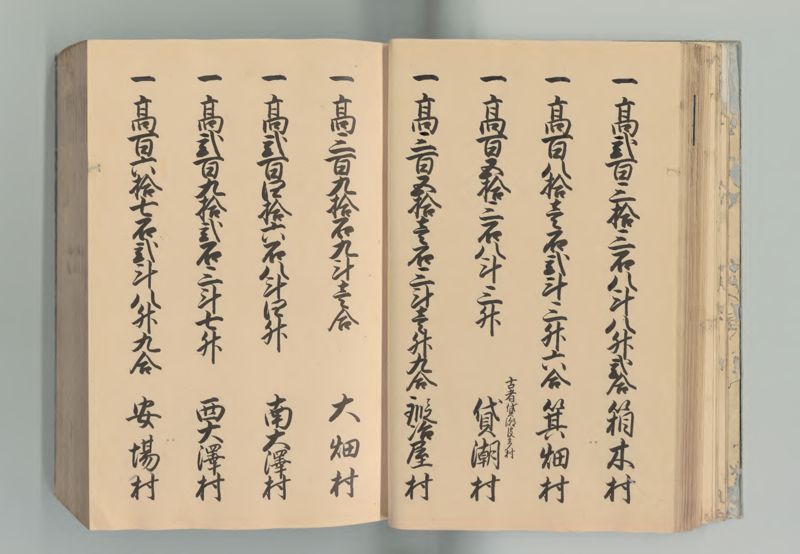 一 高弐百三拾三石八斗八升弐合 箱木村
一 高百八拾壱石弐斗三升六合 箕畑村
一 高百五拾三石八斗三升 貸潮村
一 高三百五拾壱石三斗壱升九合 鍛冶屋村
一 高三百九拾石九斗壱合 大畑村
一 高弐百四拾六石八斗四升 南大澤村
一 高弐百九拾弐石三斗七升 西大澤村
一 高百六拾七石弐斗八升九合 安場村